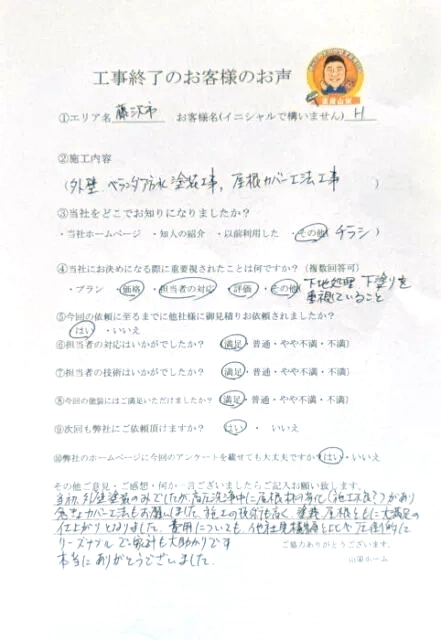 工事終了のお客様のお声
①エリア名 藤沢市 お客様名(イニシャルで構いません) H
②施工内容
(外壁 ベランダ防水 塗装工事, 屋根カバー工法工事 )
③当社をどこでお知りになりましたか?
・当社ホームページ ・知人の紹介 ・以前利用した ・その他(チラシ)
④当社にお決めになる際に重要視されたことは何ですか?(複数回答可)
・プラン ・価格 ・担当者の対応 ・評価 ・その他(下地処理 下塗りを
重視していること
⑤今回の依頼に至るまでに他社様に御見積りお依頼されましたか?
・はい ・いいえ
⑥担当者の対応はいかがでしたか? (満足・普通・やや不満・不満)
⑦担当者の技術はいかがでしたか? (満足・普通・やや不満・不満)
⑧今回の塗装にはご満足いただけましたか? (満足・普通・やや不満・不満)
⑨次回も弊社にご依頼頂けますか? ・はい ・ いいえ
⑩弊社のホームページに今回のアンケートを載せても大丈夫ですか?・はい・いいえ
その他ご意見・ご感想・何か一言ございましたらご記入お願い致します。
当初、外壁塗装のみでしたが、高圧洗浄中に屋根材の劣化(施工不良?)があり
急きょカバー工法もお願いしました. 施工の技術も高く、塗装、屋根ともに大満足の
仕上がりとなりました. 費用についても、他社見積額と比べ圧倒的に
リーズナブルで家計も大助かりです
ご協力ありがとうございます。
本当にありがとうございました.